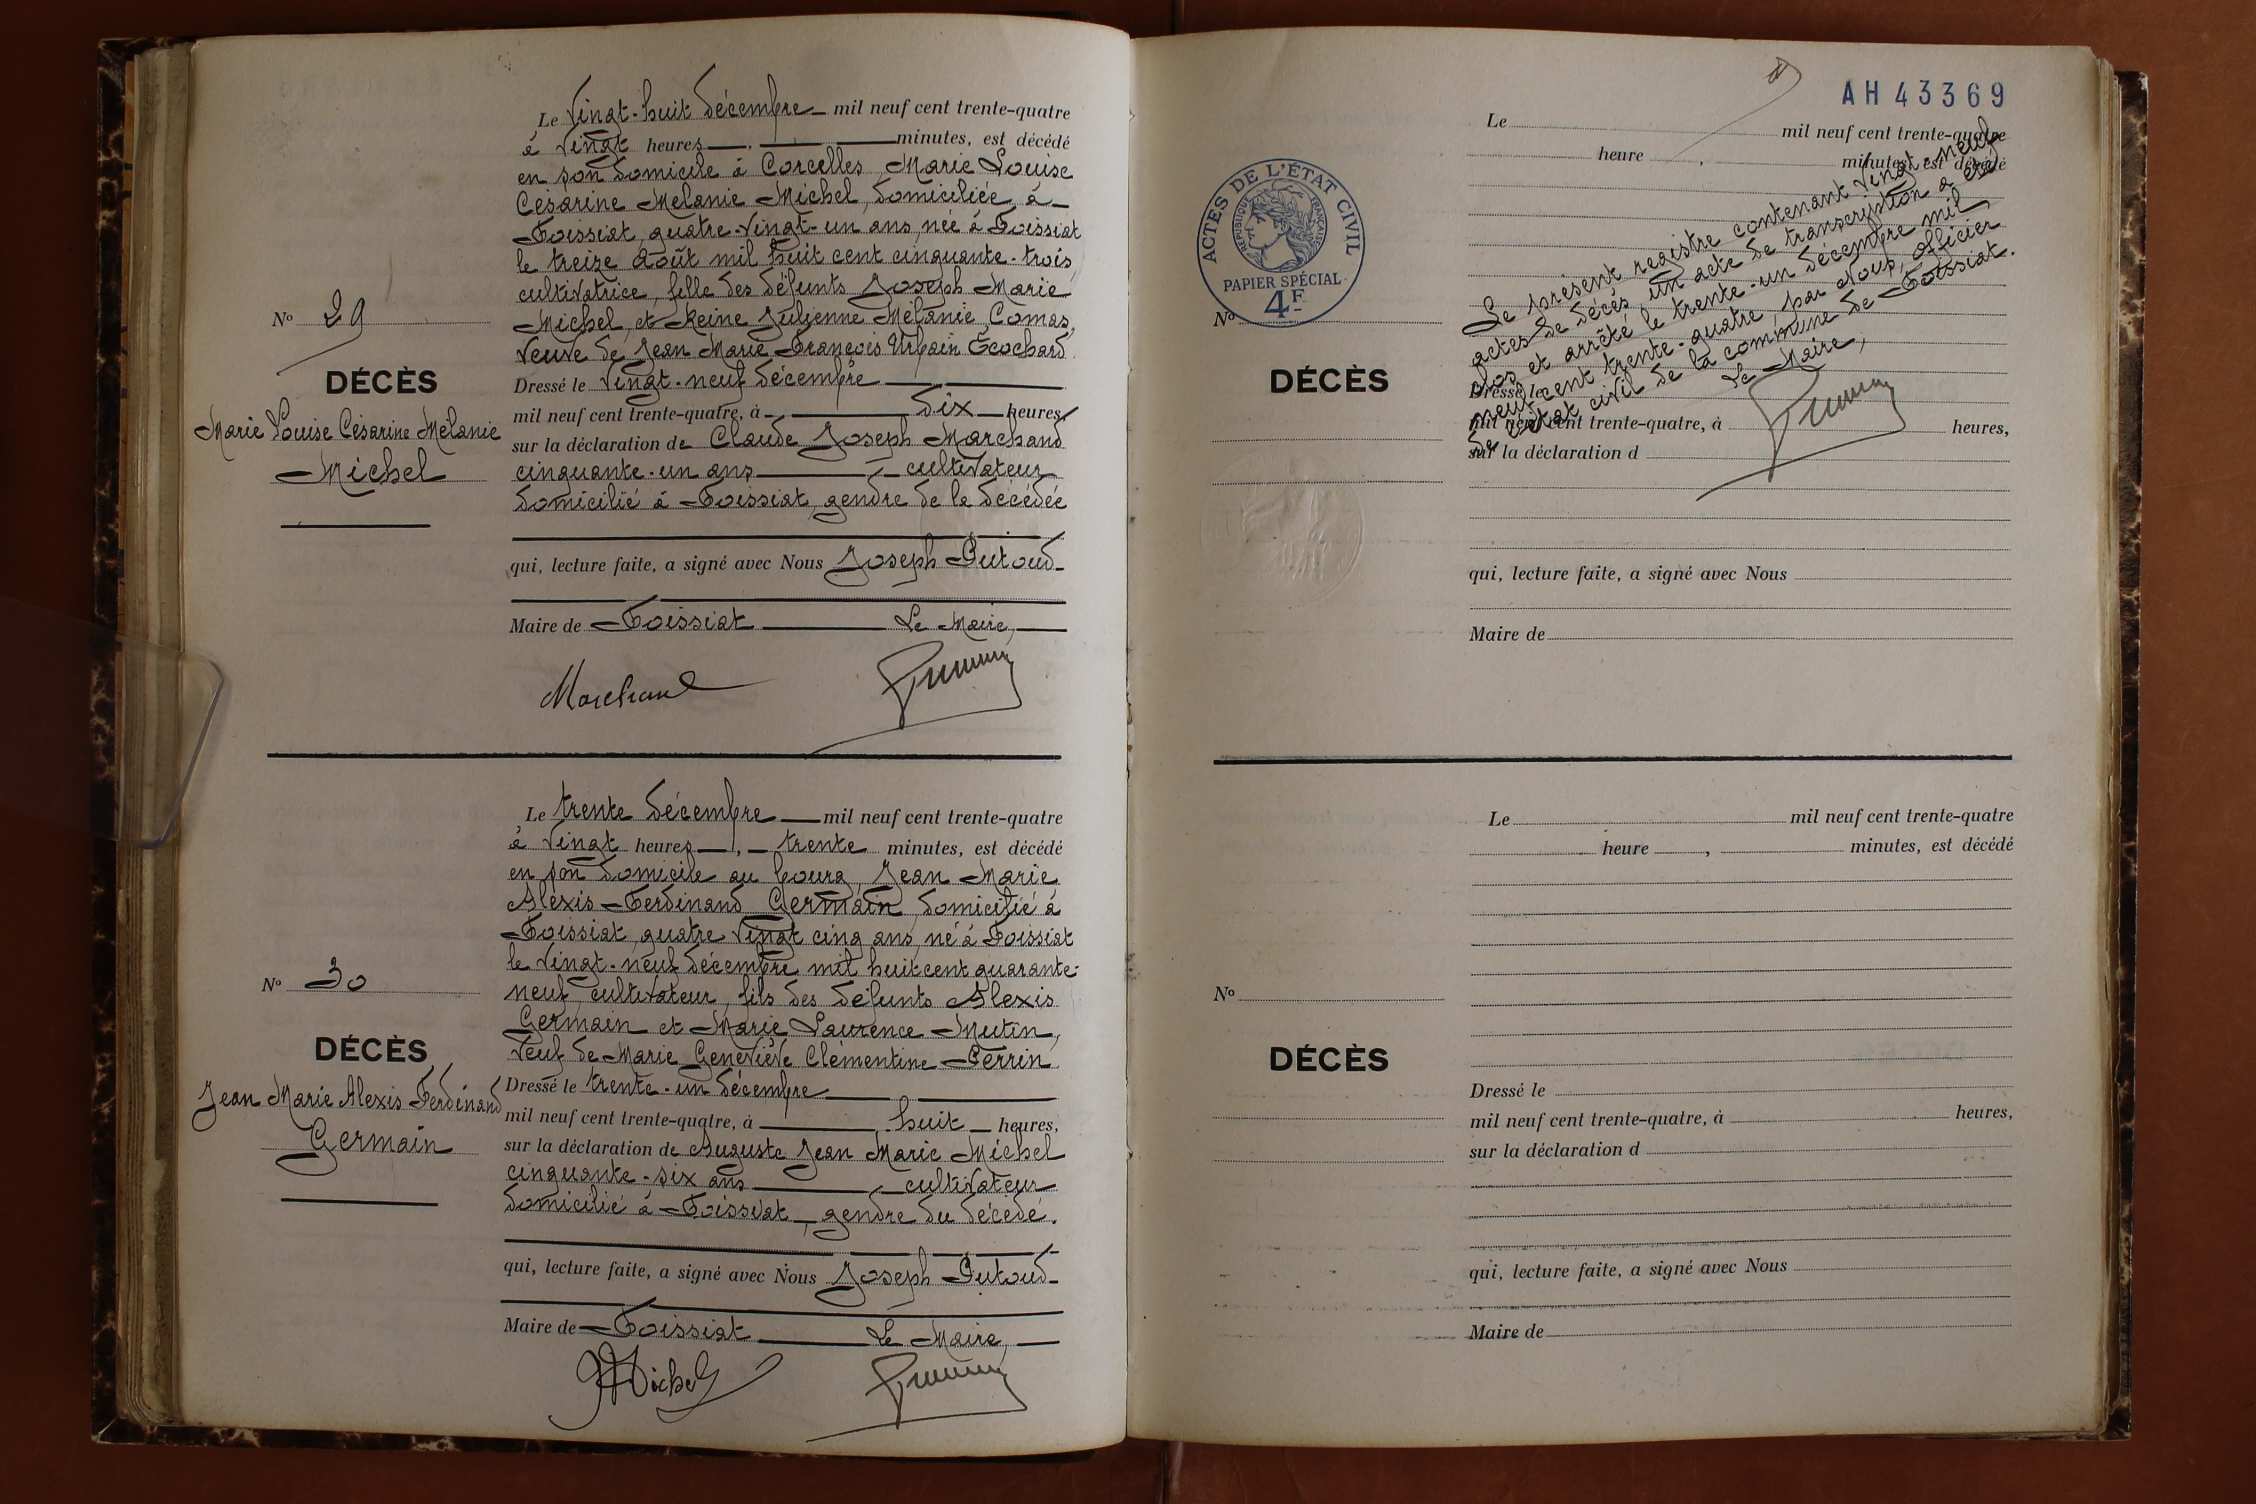 Le Vingt-huit Décembre mil neuf cent trente-quatre
à Vingt heures , minutes, est décédé
en son Domicile à Corcelles, Marie Louise
Césarine Mélanie Michel, Domiciliée à
Foissiat, quatre-Vingt-un ans, née à Foissiat
le treize Août mil huit cent cinquante-trois,
cultivatrice, fille des défunts Joseph Marie
Michel, et Reine Julienne Mélanie Comas,
Veuve de Jean Marie François Urbain Ecochard.
Nº 29
DÉCÈS
Marie Louise Césarine Mélanie
Michel
Dressé le Vingt-neuf Décembre
mil neuf cent trente-quatre, à dix heures,
sur la déclaration de Claude Joseph Marchand
cinquante-un ans, cultivateur
Domicilié à Foissiat, gendre de la décédée
qui, lecture faite, a signé avec Nous Joseph Putoud
Maire de Foissiat Le Maire,
Marchand
Le trente Décembre mil neuf cent trente-quatre
à Vingt heures , trente minutes, est décédé
en son Domicile au bourg, Jean Marie
Alexis Ferdinand Germain, Domicilié à
Foissiat, quatre Vingt cinq ans, né à Foissiat
le Vingt-neuf Décembre mil huit cent quarante-
neuf, cultivateur, fils des défunts Alexis
Germain et Marie Laurence Mutin,
Veuf de Marie Geneviève Clémentine Perrin
Nº 30
DÉCÈS
Jean Marie Alexis Ferdinand
Germain
Dressé le trente-un Décembre
mil neuf cent trente-quatre, à huit heures,
sur la déclaration de Auguste Jean Marie Michel
cinquante-six ans, cultivateur
Domicilié à Foissiat, gendre du décédé.
qui, lecture faite, a signé avec Nous Joseph Putoud
Maire de Foissiat Le Maire,
Michel
AH 43369
Le mil neuf cent trente-quatre
heure , minutes, est décédé
ACTES DE L'ÉTAT CIVIL
RÉPUBLIQUE FRANÇAISE
PAPIER SPÉCIAL
4F
Le présent registre contenant Vingt-neuf
actes de décès, un acte de transcription a été
clos et arrêté le trente-un décembre mil
neuf cent trente-quatre, par Nous, Officier
de l'état civil de la commune de Foissiat.
Le Maire,
Nº
DÉCÈS
Dressé le
mil neuf cent trente-quatre, à heures,
sur la déclaration d
qui, lecture faite, a signé avec Nous
Maire de
Le mil neuf cent trente-quatre
heure , minutes, est décédé
Nº
DÉCÈS
Dressé le
mil neuf cent trente-quatre, à heures,
sur la déclaration d
qui, lecture faite, a signé avec Nous
Maire de